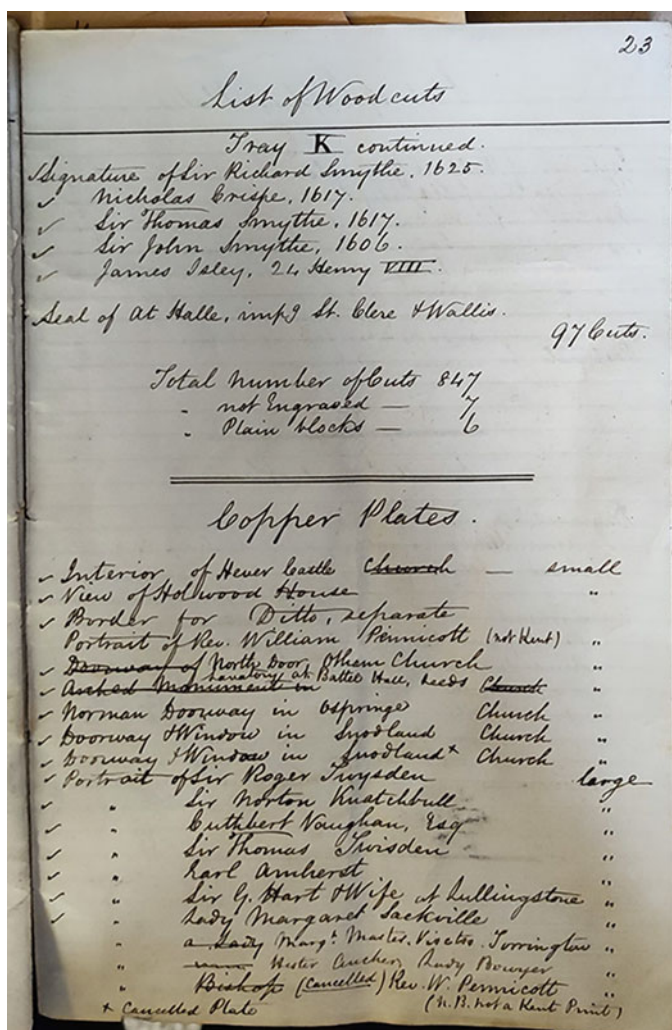 23
List of Woodcuts
Tray K continued.
✓ Signature of Sir Richard Smythe, 1625.
✓ Nicholas Crispe, 1617.
✓ Sir Thomas Smythe, 1617.
✓ Sir John Smythe, 1606.
✓ James Isley, 24 Henry VIII.
Seal of At Halle, impg St. Clere & Wallis.
97 Cuts.
Total number of Cuts 847
" not Engraved — 7
" Plain blocks — 6
Copper Plates.
✓ Interior of Hever Castle Church — small
✓ View of Holwood House "
✓ Border for Ditto, separate
Portrait of Rev. William Pennicott (not Kent) "
✓ Doorway of North Door, Otham Church "
✓ Arched Monument in Lavatory at Battel Hall, Leeds Church "
✓ Norman Doorway in Ospringe Church "
✓ Doorway & Window in Snodland Church "
✓ Doorway & Window in Snodland + Church "
✓ Portrait of Sir Roger Twysden large
✓ " Sir Norton Knatchbull "
✓ " Cuthbert Vaughan, Esq "
✓ " Sir Thomas Twisden "
✓ " Earl Amherst "
✓ " Sir G. Hart & Wife at Lullingstone "
✓ " Lady Margaret Sackville "
" a Lady Margt. Master, Visctss. Torrington "
" Hester Aucher, Lady Bowyer "
" Bishop (cancelled) Rev. W. Pennicott "
+ Cancelled Plate (N.B. not a Kent Print)